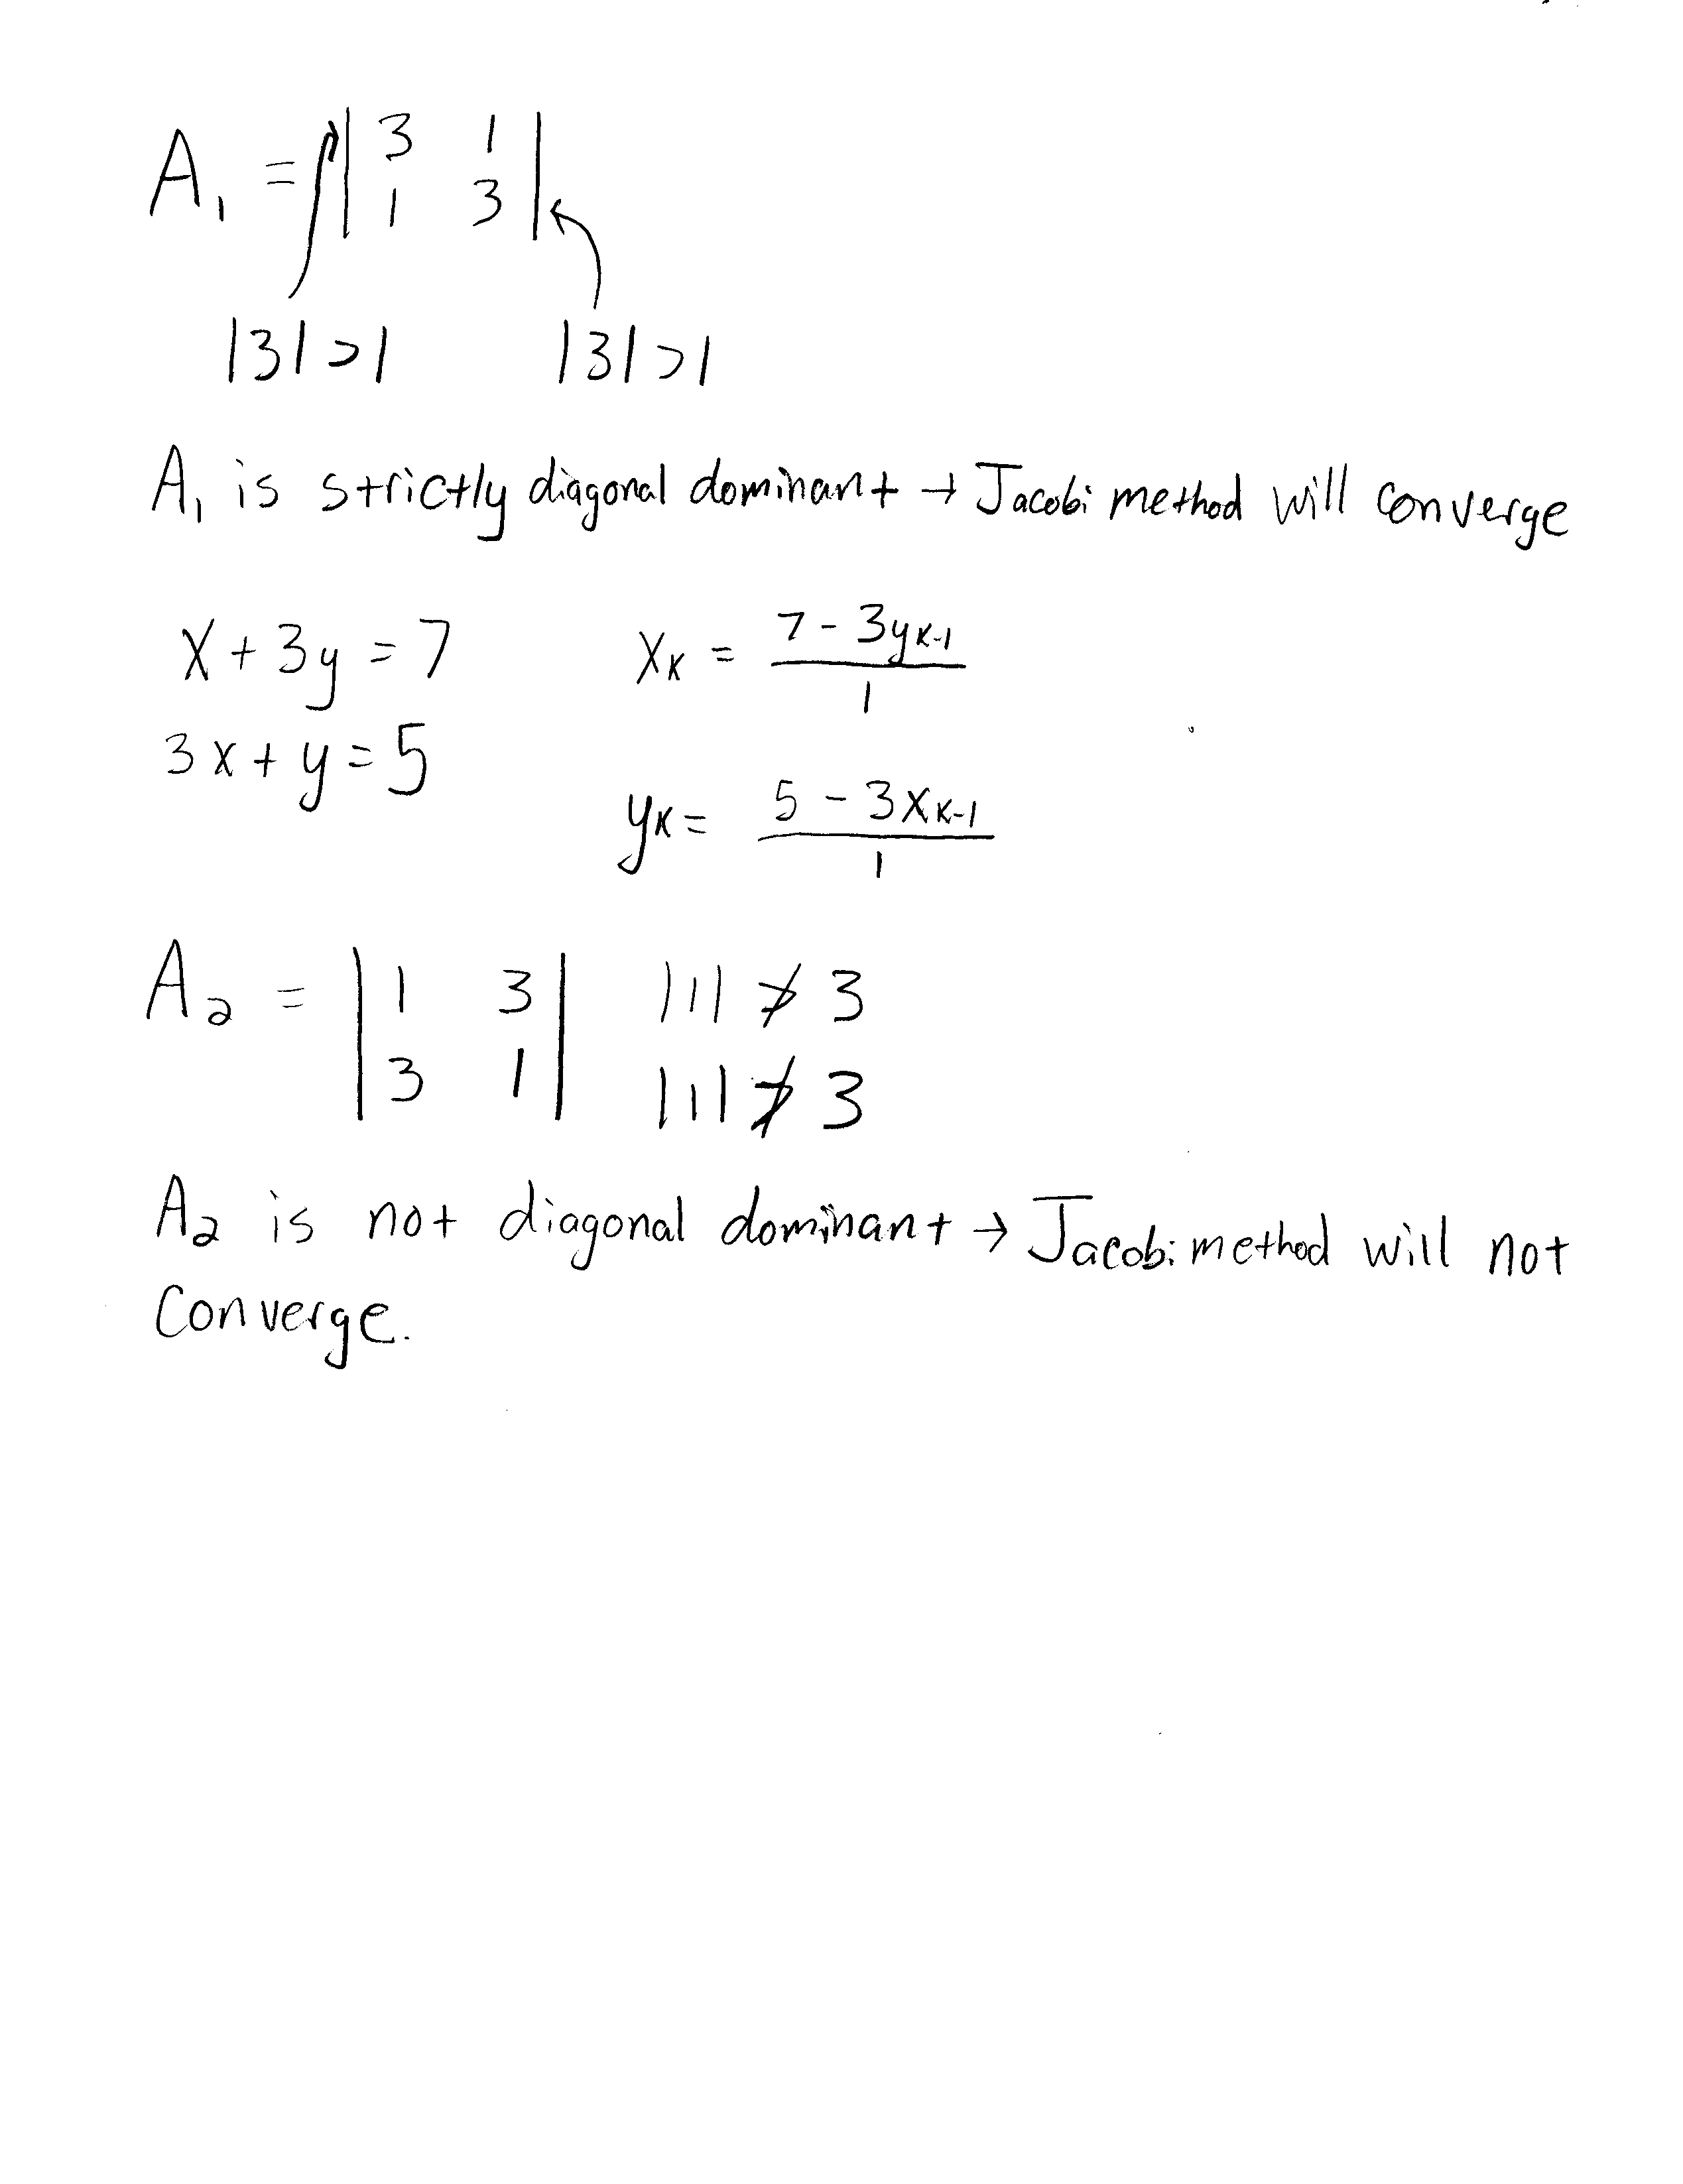 A₁ = | 3 1 |
| 1 3 |
|3| > 1 |3| > 1
A₁ is strictly diagonal dominant → Jacobi method will converge
x + 3y = 7 xₖ = (7 - 3yₖ₋₁)/1
3x + y = 5 yₖ = (5 - 3xₖ₋₁)/1
A₂ = | 1 3 | |1| ≯ 3
| 3 1 | |1| ≯ 3
A₂ is not diagonal dominant → Jacobi method will not
Converge.